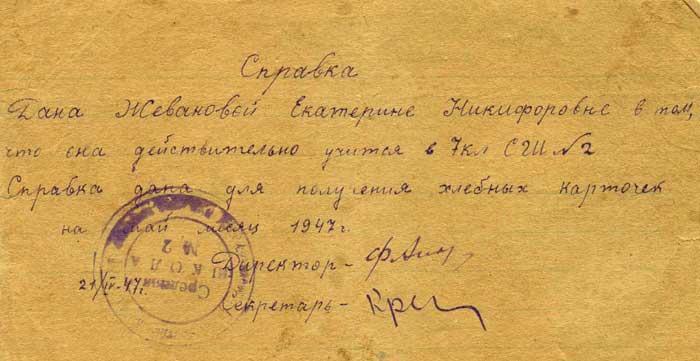 Справка
Дана Жевановей Екатерине Никифоровне в том,
что она действительно учится в 7кл СШ №2
Справка дана для получения хлебных карточек
на май месяц 1947г.
Директор-
21/IV-47г.
Секретарь-
Средняя
ШКОЛА
№ 2